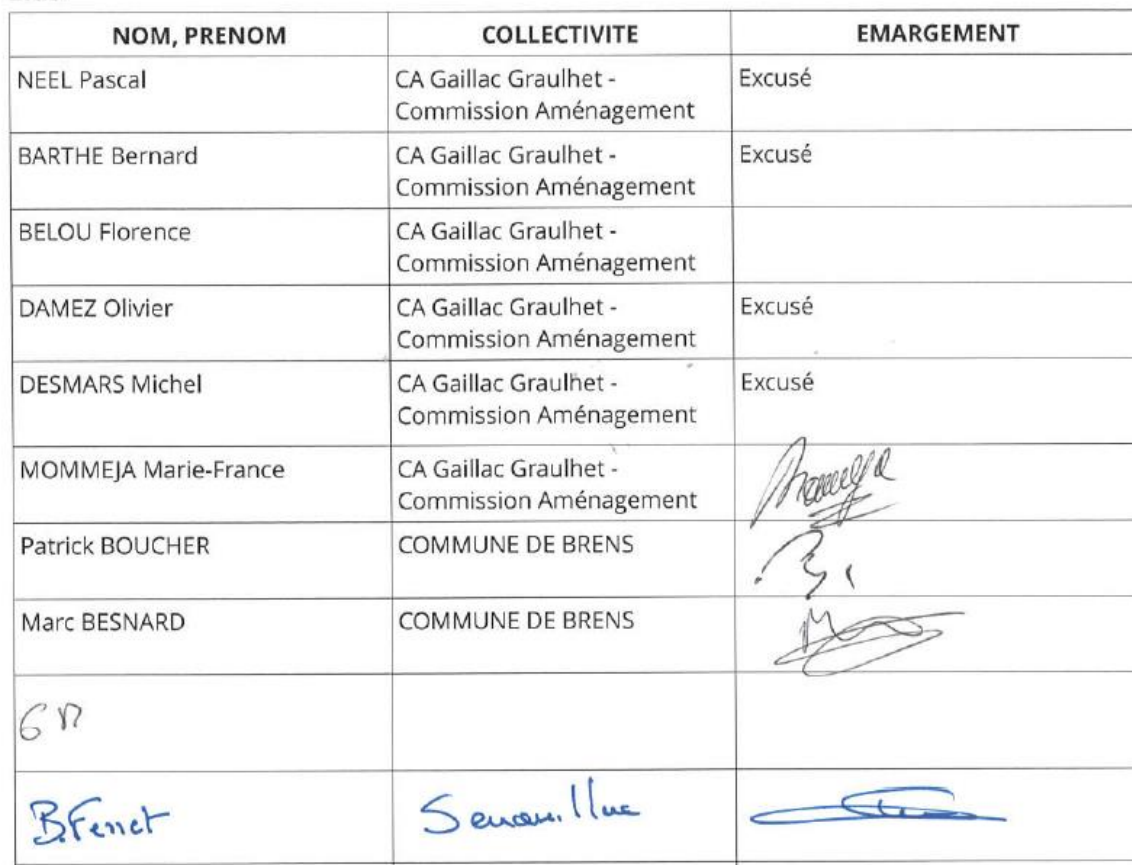 NOM, PRENOM COLLECTIVITE EMARGEMENT
NEEL Pascal CA Gaillac Graulhet - Excusé
Commission Aménagement
BARTHE Bernard CA Gaillac Graulhet - Excusé
Commission Aménagement
BELOU Florence CA Gaillac Graulhet -
Commission Aménagement
DAMEZ Olivier CA Gaillac Graulhet - Excusé
Commission Aménagement
DESMARS Michel CA Gaillac Graulhet - Excusé
Commission Aménagement
MOMMEJA Marie-France CA Gaillac Graulhet -
Commission Aménagement
Patrick BOUCHER COMMUNE DE BRENS
Marc BESNARD COMMUNE DE BRENS